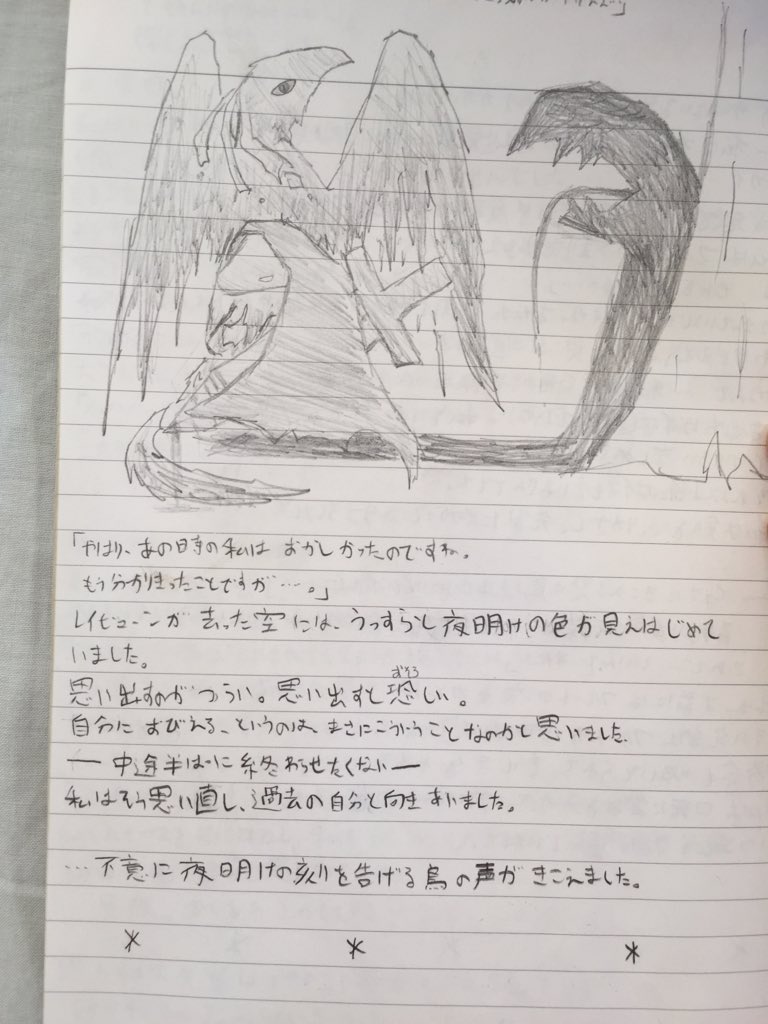 「やはり、あの日寺の私は おかしかったのですね。
もう分かりきったことですが…。」
レイビューンが 去った空には、うっすらし夜明けの色が見えはじめて
いました。
思い出すのが つらい。思い出すと恐しい。
ずそろ
自分に おびえる、というのは、まさにこういうことなのかと思いました。
― 中途半ぱに 終わらせたくない ―
私はそう思い直し、過去の自分と向きあいました。
…不意に夜明けの刻を告げる鳥の声が きこえました。
* * *